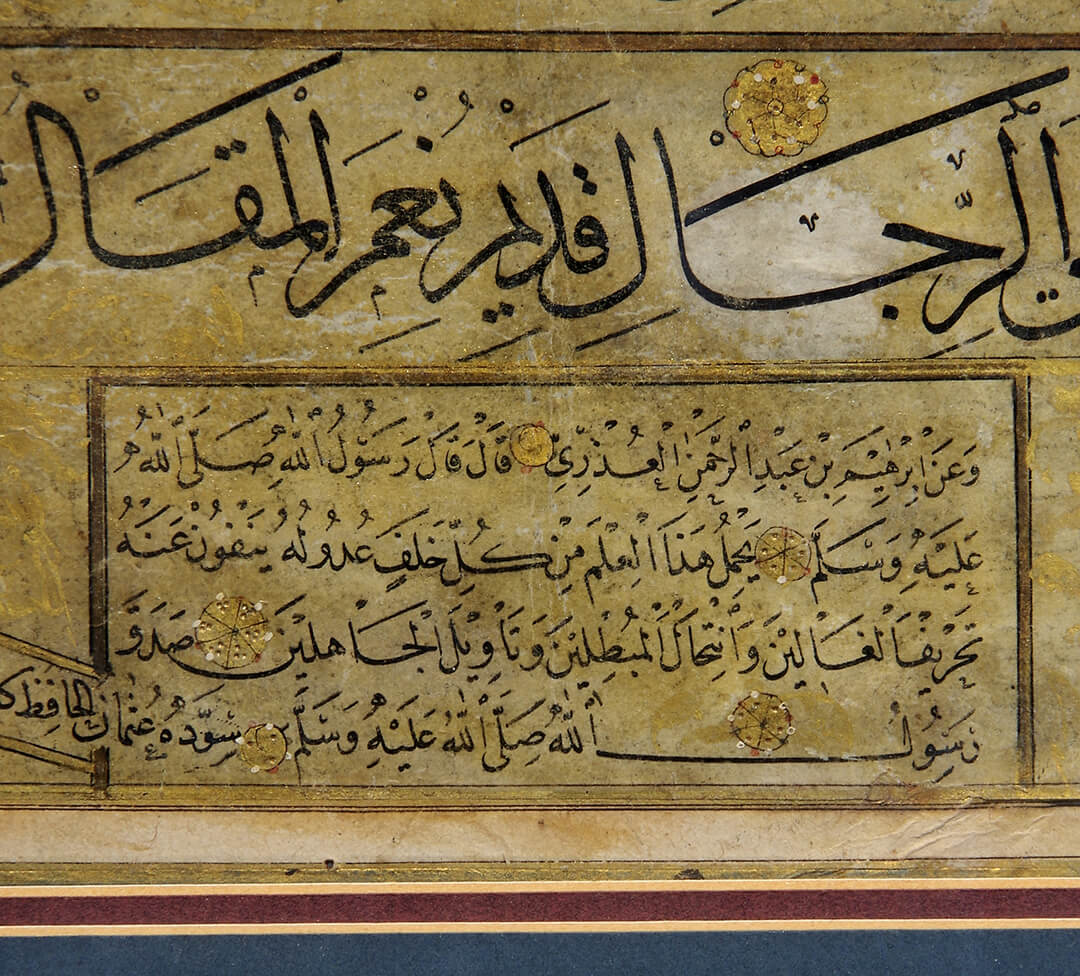 الرِّجَال قديم نِعْمَ الْمَقَال
وَعَنْ اِبْرٰهِيمَ بْنِ عَبْدِ الرَّحْمٰنِ الْعُذْرِيِّ قَالَ قَالَ رَسُولُ اللّٰهِ صَلَّى اللّٰهُ
عَلَيْهِ وَسَلَّمَ يَحْمِلُ هٰذَا الْعِلْمَ مِنْ كُلِّ خَلَفٍ عُدُولُهُ يَنْفُونَ عَنْهُ
تَحْرِيفَ الْغَالِينَ وَانْتِحَالَ الْمُبْطِلِينَ وَتَأْوِيلَ الْجَاهِلِينَ صَدَقَ
رَسُولُ اللّٰهِ صَلَّى اللّٰهُ عَلَيْهِ وَسَلَّمَ سَوَّدَهُ عُثْمَانُ الْحَافِظُ